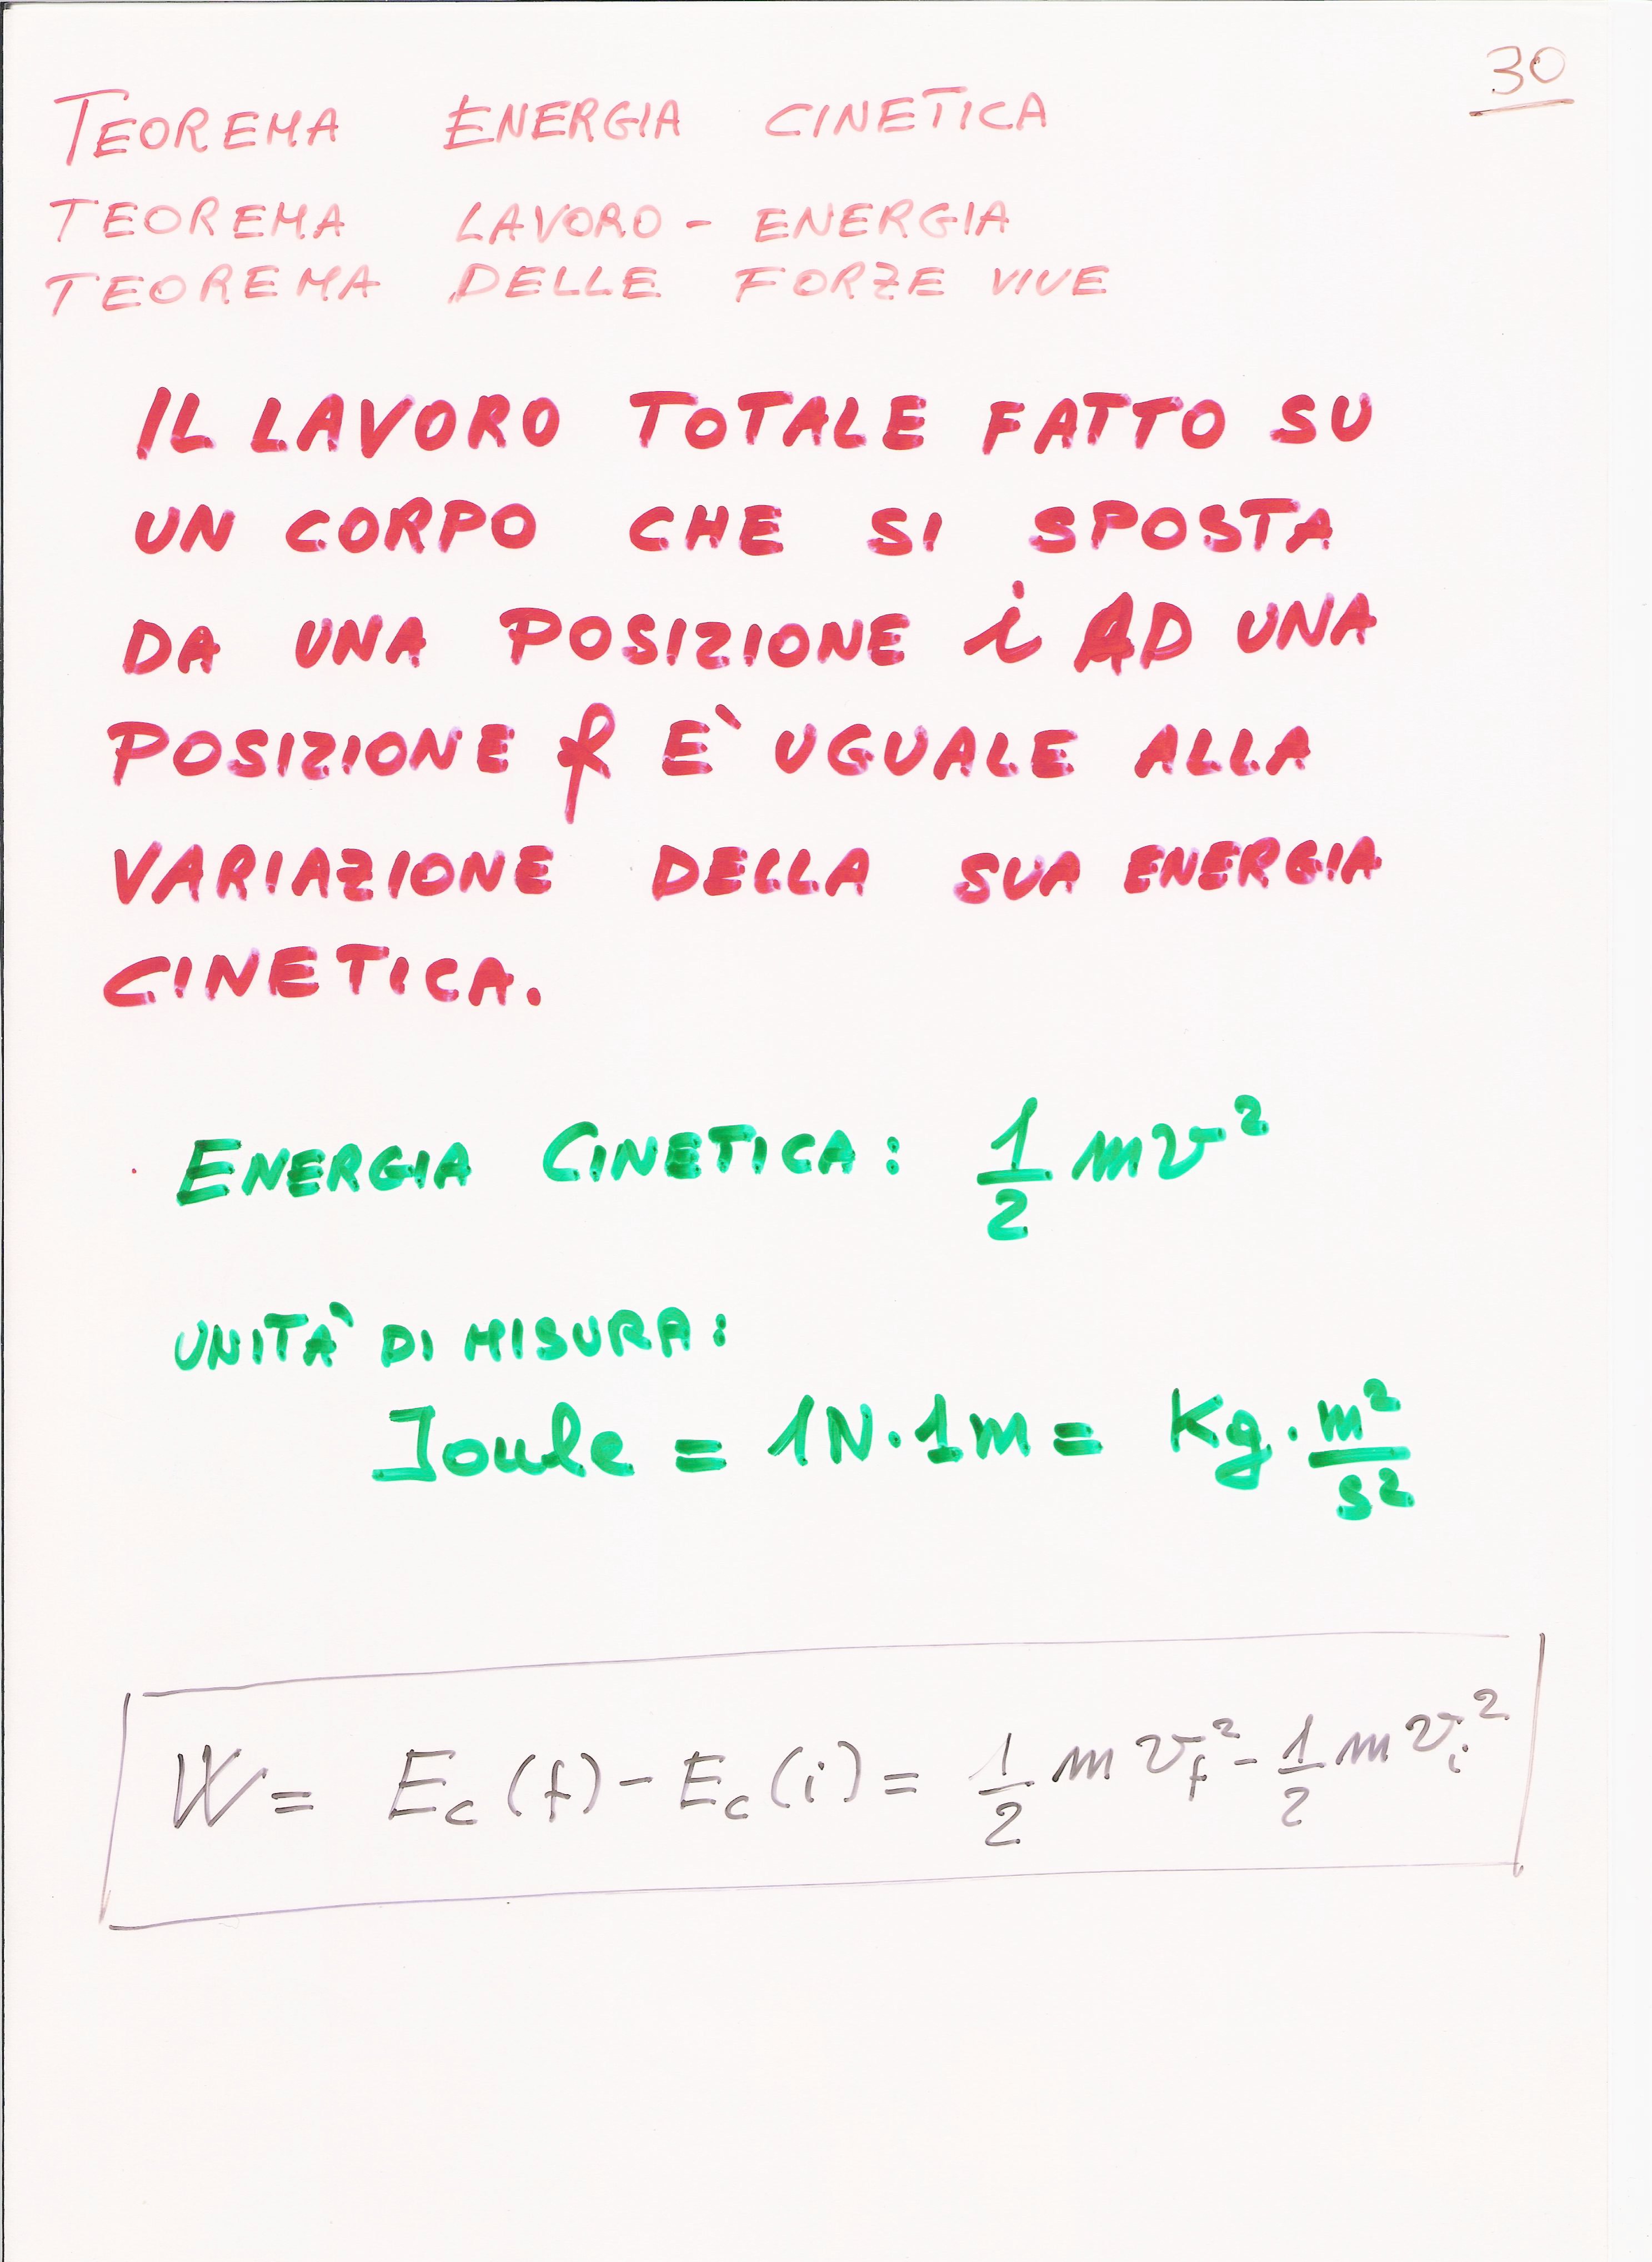 30
TEOREMA ENERGIA CINETICA
TEOREMA LAVORO - ENERGIA
TEOREMA DELLE FORZE VIVE
IL LAVORO TOTALE FATTO SU
UN CORPO CHE SI SPOSTA
DA UNA POSIZIONE i AD UNA
POSIZIONE f E` UGUALE ALLA
VARIAZIONE DELLA SUA ENERGIA
CINETICA.
ENERGIA CINETICA: 1/2 mv²
UNITÀ DI MISURA:
Joule = 1N·1m = Kg · m²/s²
W = Ec(f) - Ec(i) = 1/2 m vf² - 1/2 m vi²